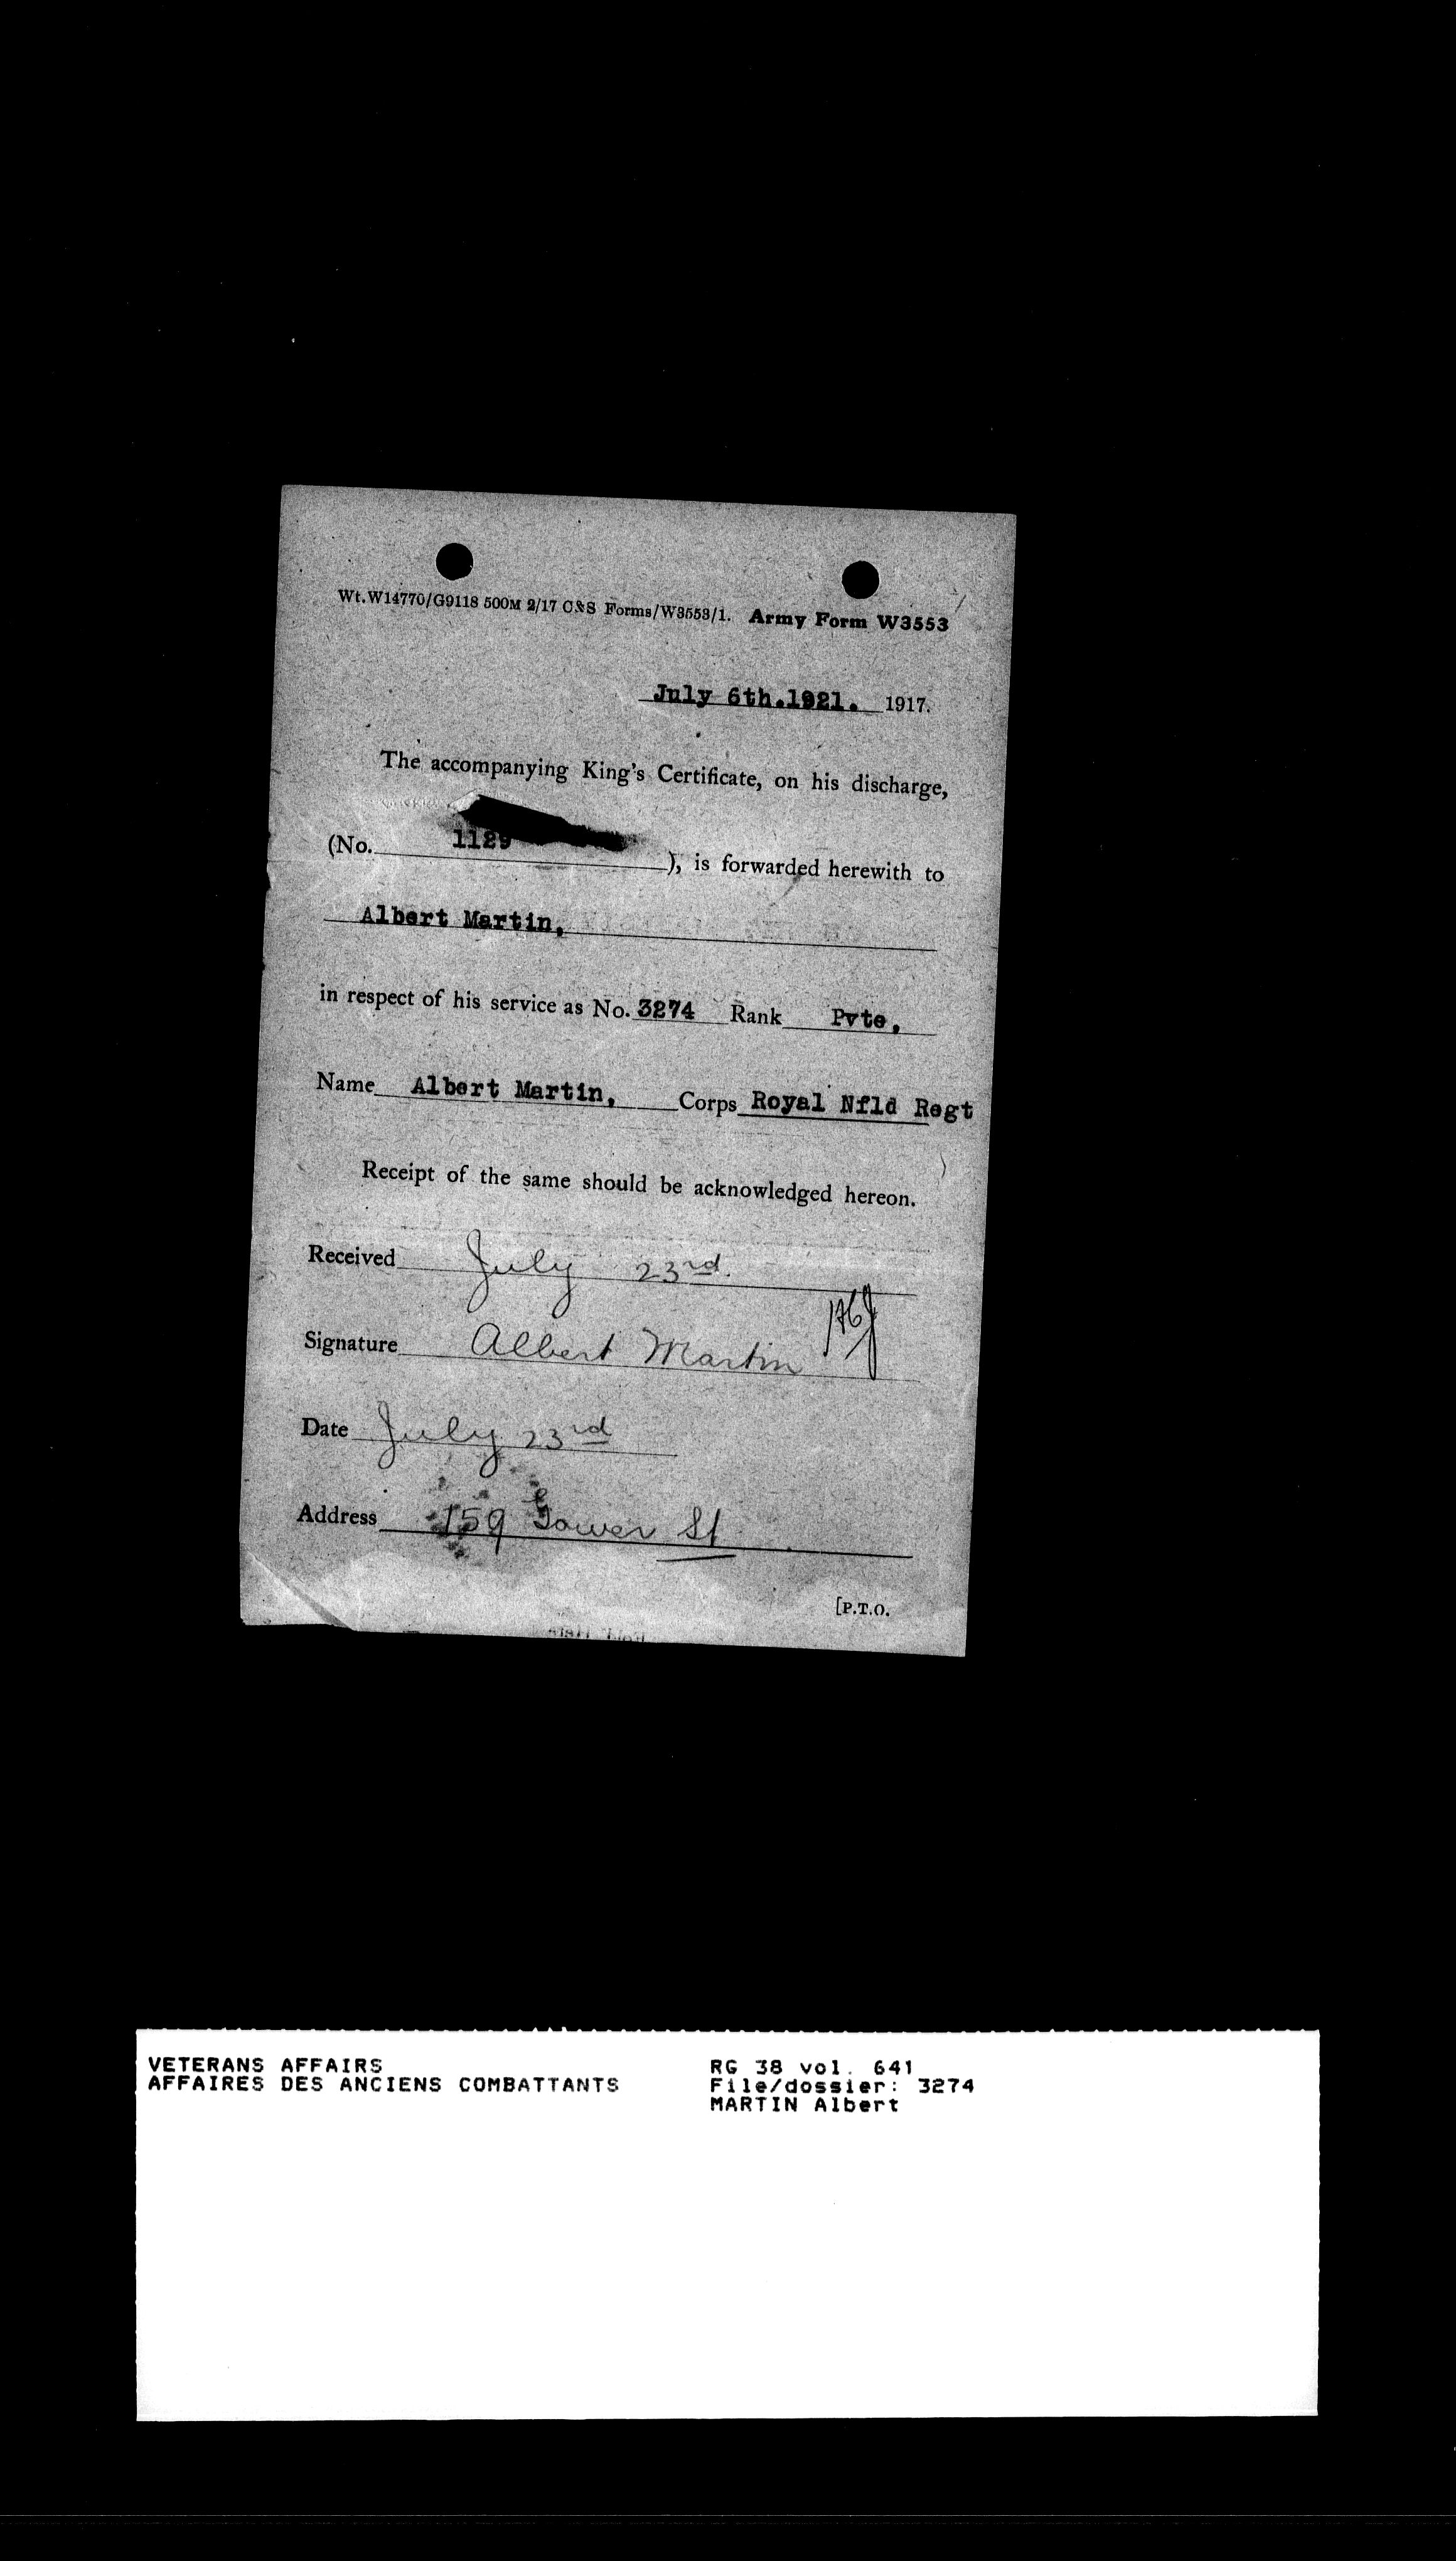 Wt.W14770/G9118 500M 2/17 C&S Forms/W3553/1. Army Form W3553
July 6th.1921. 1917.
The accompanying King's Certificate, on his discharge,
(No. 1129 ), is forwarded herewith to
Albert Martin,
in respect of his service as No. 3274 Rank Pvte,
Name Albert Martin, Corps Royal Nfld Regt
Receipt of the same should be acknowledged hereon.
Received July 23rd.
Signature Albert Martin
Date July 23rd
Address 159 Gower St
[P.T.O.
VETERANS AFFAIRS RG 38 vol. 641
AFFAIRES DES ANCIENS COMBATTANTS File/dossier: 3274
MARTIN Albert